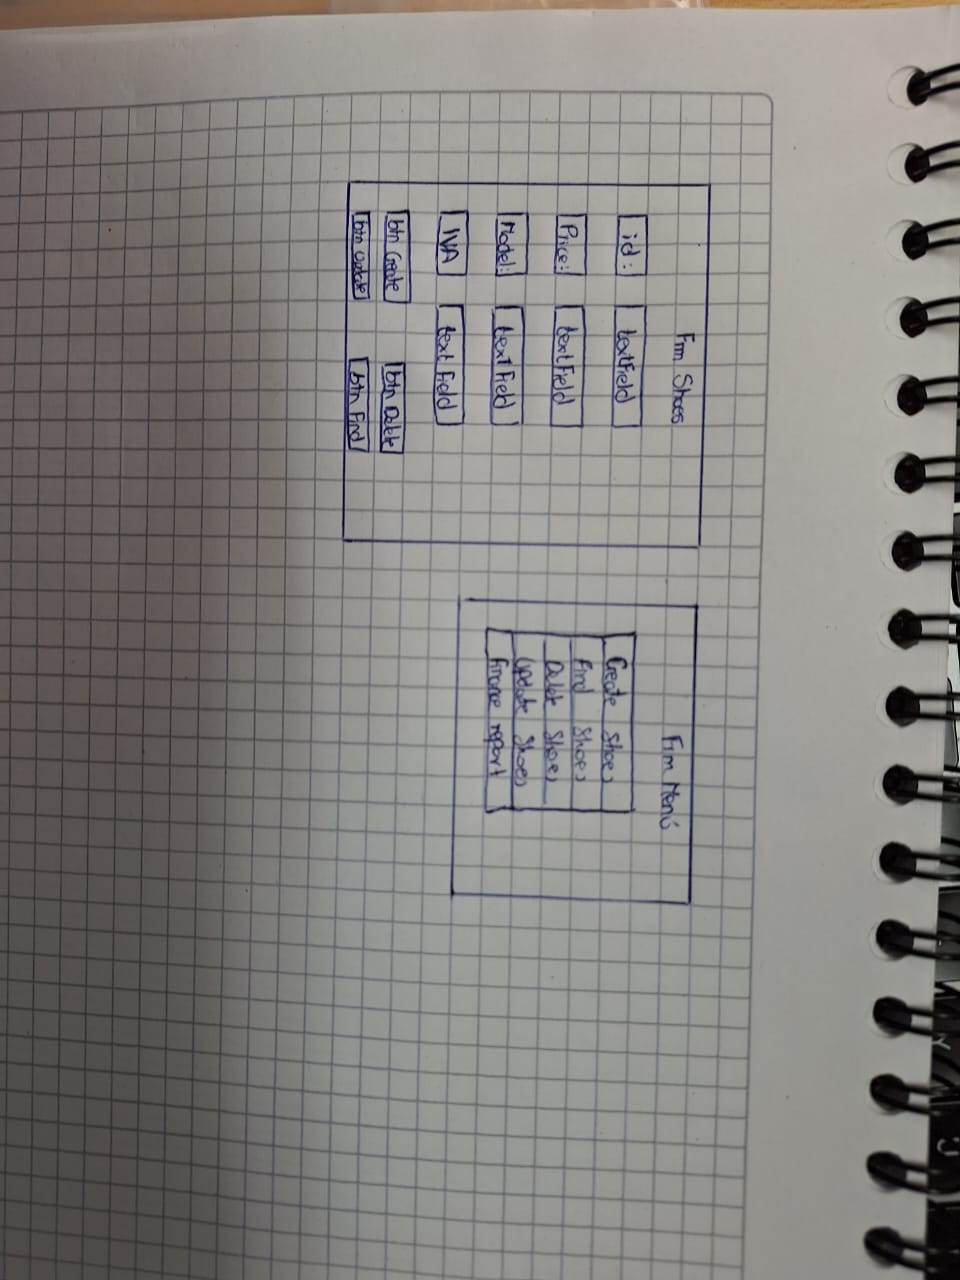 Frm Shoes
id: textField
Price: textField
Model: textField
IVA text Field
btn Create btn Delete
btn Update btn Find
Frm Menú
Create Shoes
Find Shoes
Delete Shoes
Update Shoes
Finance report